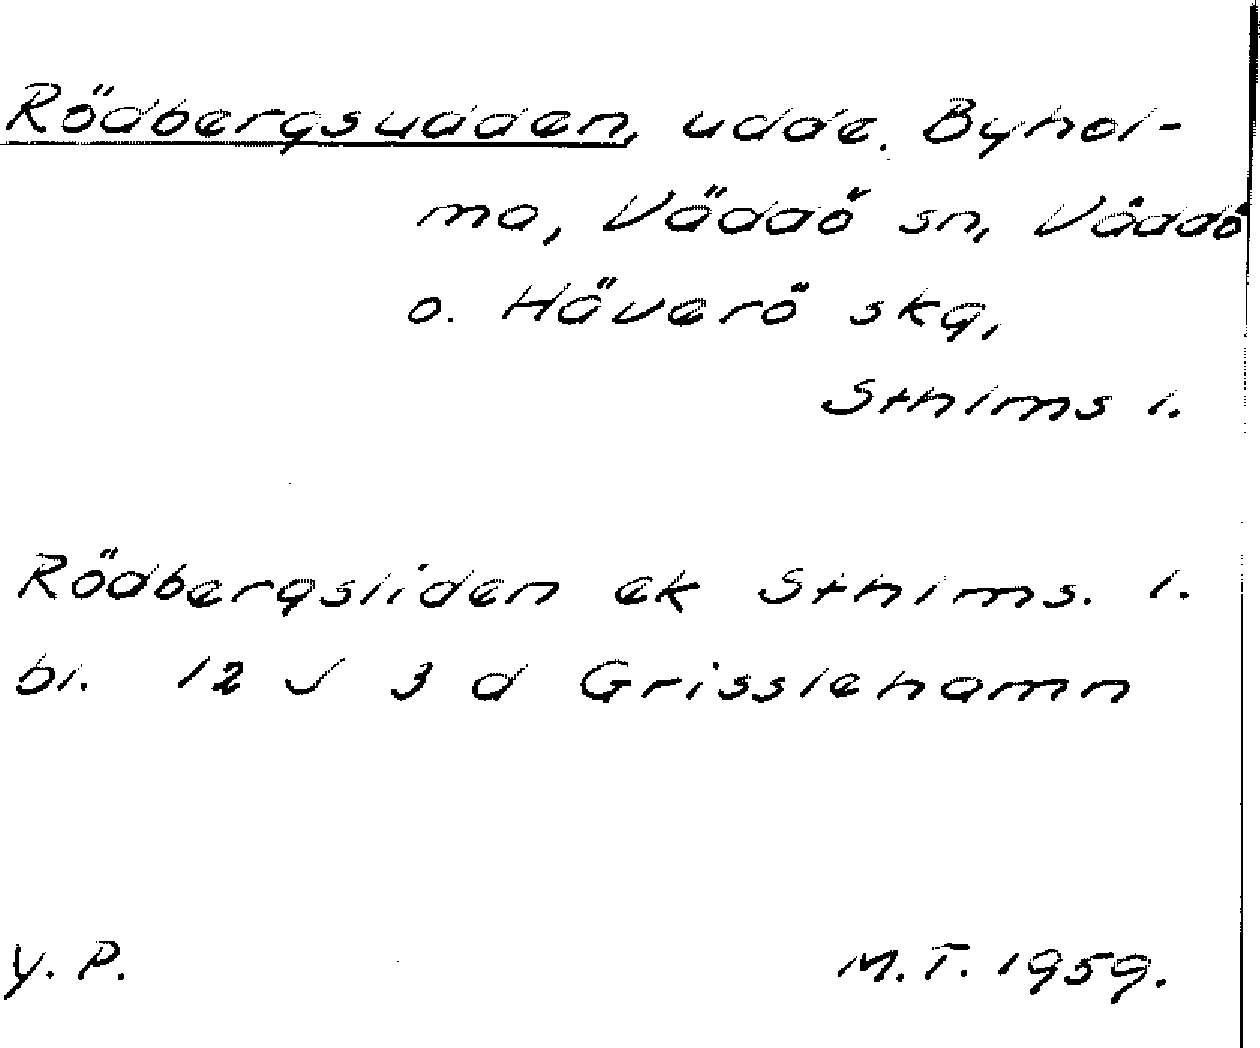 Rödbergsudden, udde. Byhol-
ma, Väddö sn, Väddö
o. Häverö skg,
Sthlms l.
Rödbergsliden ek Sthlms. l.
bl. 12 J 3 d Grisslehamn
Y. P.
M. T. 1959.